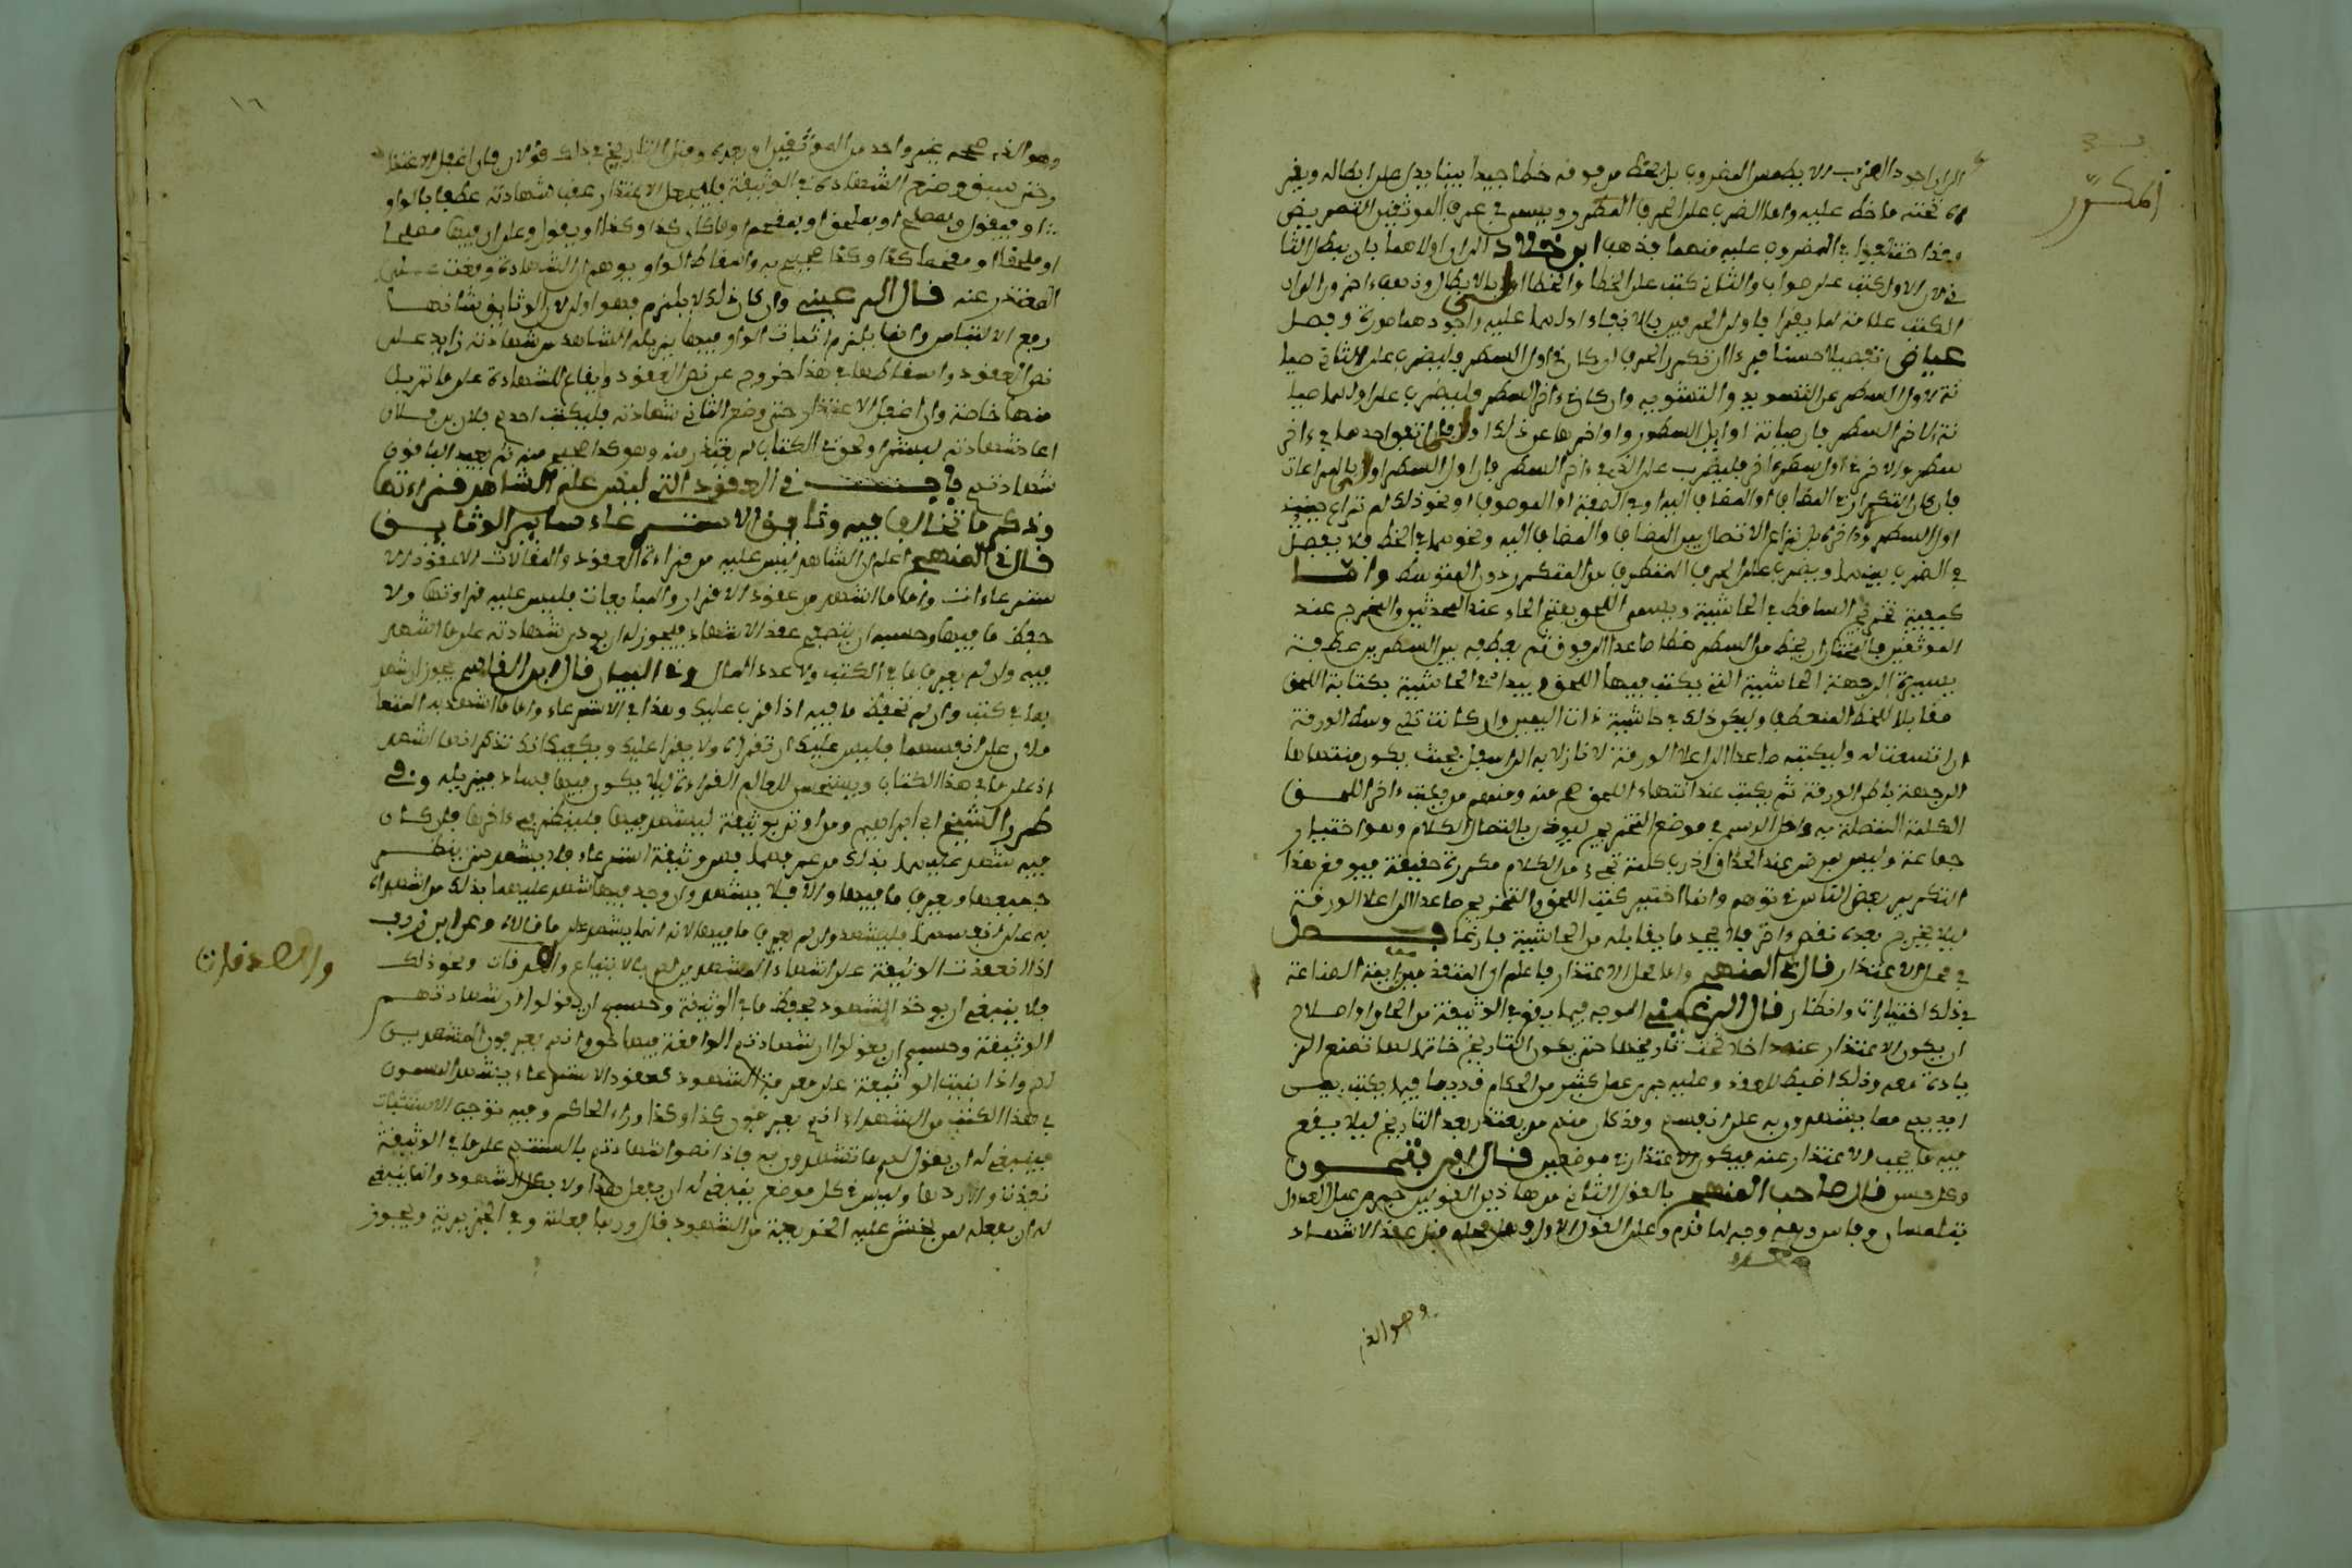 المكرر
الى ان اجود الضرب ان لا يطمس المضروب بل يخط من فوقه خطا جيدا بينا يدل على ابطاله ويقرأ
ما تحته ما خط عليه واما الضرب على الحرف المكرر ويسمى في عرف الموثقين التمريض
وقد اختلفوا في المضروب عليه منهما فذهب ابن خلاد الى ان اولاهما بان يبطل الثا
ني لان الاول كتب على صواب والثاني كتب على الخطا والخطا اولى بالابطال وذهب اخرون الى ان
الكتب علامة لما يقرا فاولى الحرفين بالابقاء ادلهما عليه واجودهما صورة وفصل
عياض تفصيلا حسنا فرءا ان تكرر الحرف ان كان في اول السطر فليضرب على الثاني صيا
نة لاول السطر عن التسويد والتشويه وان كان في ءاخر السطر فليضرب على اولهما صيا
نة لاخر السطر فان صيانة اوايل السطور واواخرها عن ذلك اولى فان اتفق احدهما في ءاخر
سطر والاخر في اول سطر ءاخر فليضرب على الذي في ءاخر السطر فان اول السطر اولى بالمراعات
فان كان التكرار في المضاف او المضاف اليه او في الصفة او الموصوف او نحو ذلك لم نراع حينئذ
اول السطر وءاخره بل نراعي الاتصال بين المضاف والمضاف اليه ونحوهما في الخط فلا يفصل
في الضرب بينهما ويضرب على الحرف المتطرف من المتكرر دون المتوسط واما
كيفية تخريج الساقط في الحاشية ويسمى اللحق بفتح الحاء عند المحدثين والمخرج عند
الموثقين فالمختار ان يخط من السطر خطا صاعدا الى فوق ثم يعطفه بين السطرين عطفة
يسيرة الى جهة الحاشية التي يكتب فيها اللحق ويبدا في الحاشية بكتابة اللحق
مقابلا للخط المنعطف وليكن ذلك في حاشية ذات اليمين وان كانت تلي وسط الورقة
ان اتسعت له وليكتبه صاعدا الى اعلا الورقة لا نازلا به الى اسفل بحيث يكون منتهاها
الى جهة باطن الورقة ثم يكتب عند انتهاء اللحق صح منه ومنهم من يكتب ءاخر اللحق
الكلمة المتصلة به داخل الرسم في موضع التخريج ليوذن باتصال الكلام وهو اختيار
جماعة وليس بمرضي عند الحذاق اذ رب كلمة تجيء من الكلام مكررة حقيقة فيوقع هذا
التكرير بعض الناس في توهم وانما اختير كتب اللحق والتخريج صاعدا الى اعلا الورقة
ليلا يخرج بعده نقص ءاخر فلا يجد ما يقابله من الحاشية فارغا فصل
في محل الاعتذار قال في المنهج واما محل الاعتذار فاعلم ان لمتقدمين ايمة الصناعة
في ذلك اختيارات وانظار قال الرعيني الموجه فيما يقع في الوثيقة من الحاق او اصلاح
ان يكون الاعتذار عنه داخلا تحت تاريخها حتى يكون التاريخ خاتما لها تمنع الز
يادة معه وذلك اضبط للعقد وعليه جرى عمل كثير من الحكام قديما فيما يكتب بين
ايديهم مما يشهدون به على انفسهم وقد كان منهم من يعتذر بعد التاريخ ليلا يقع
فيه ما يجب الاعتذار عنه فيكون الاعتذار في موضعين قال ابن فتحون
وكل حسن قال صاحب المنهج بالقول الثاني من هاذين القولين جرى عمل العدول
بتلمسان وفاس وهو وجه لما قدم وعلى القول الاول فهل محله قبل عقد الاشهاد
وهو الذي
١٦
وهو الذي صححه غير واحد من الموثقين او بعده وقبل التاريخ في ذلك قولان فان اغفل الاعتذا
وحتى سبق وضع الشهادة في الوثيقة فليجعل الاعتذار عقب شهادته عطفا بالواو
او فيقول وبمصلح او بملحق او بمقحم او فاكان كذا وكذا او يقول وعلى ان فيها مصلحا
او ملحقا او مقحما كذا وكذا صحيح به واسقاط الواو يوهم ان الشهادة وقعت على
المعتذر عنه قال الرعيني وان كان ذلك لا يلزم فهو اولى لان الوثايق شانها
رفع الالتباس وانما يلزم اثبات الواو فيما يزيده الشاهد من شهادته زايد على
نص العقود واسقاطها في هذا خروج عن نص العقود وايقاع للشهادة على ما تزيد
منها خاصة وان اغفل الاعتذار حتى وضع الثاني شهادته فليكتب احدهم فلان بن فلان
اعاد شهادته ليستمر او نحو في الكتاب لم يعتذر منه وهو كذا صحيح منه ثم يعيد الباقون
شهادتهم فصل في العقود التي ليس على الشاهد قراءتها
وذكر ما تخالف فيه وثايق الاسترعاء ساير الوثايق
قال في المنهج اعلم ان الشاهد ليس عليه من قراءة العقود والمقالات الا عقود الا
سترعاءات واما ما اشهد من عقود الاقرار والمبايعات فليس عليه قراءتها ولا
حفظ ما فيها وحسبه ان يتصفح عقد الاشهاد فيجوز له ان يودي شهادته على ما اشهد
فيه وان لم يعرف ما في الكتب ولا عدد المال وفي البيان قال ابن القاسم يجوز ان شهد
بما في كتب وان لم تحفظ ما فيه اذا قرب عليك وهذا في الاسترعاء واما ما اشهد به المتعا
ملان على انفسهما فليس عليك ان تقراه ولا يقرا عليك ويكفيك انك تذكر انهما اشهد
اك على ما في هذا الكتاب ويستحسن للعالم القراءة ليلا يكون فيها فساد فيزيله وفي
طرر الشيخ ابي ابراهيم ومن اوتي بوثيقة ليشهد فيها فلينظر في ءاخرها فان كان
فيه شهد عليهما بذلك من عرفهما فهي وثيقة استرعاء فلا يشهد حتى ينظر
جميعها ويعرف ما فيها والا فلا يشهد وان وجد فيها شهد عليهما بذلك من اشهداه
به على انفسهما فليشهد وان لم يعرف ما فيها لانه انما يشهد على ما قالاه وعن ابن زرب
اذا انعقدت الوثيقة على اشهاد المشهدين لهم بالابتياع والصدقات ونحو ذلك
والصدقات
فلا ينبغي ان يوخذ الشهود بحفظ ما في الوثيقة وحسبهم ان يقولوا ان شهادتهم
الوثيقة وحسبهم ان يقولوا ان شهادتهم الواقعة فيها حق وانهم يعرفون المشهدين
لهم واذا بنيت الوثيقة على معرفة الشهود كعقود الاسترعاء يشهد المسمون
في هذا الكتب من الشهداء انهم يعرفون كذا وكذا وراء الحاكم وفيه توجب الاستثبات
فينبغي له ان يقول لهم ما تشهدون به فاذا نصوا شهادتهم بالسنتهم على ما في الوثيقة
نفذت والا ردها وليس في كل موضع ينبغي له ان يفعل هذا ولا بكل الشهود وانما ينبغي
له ان يفعله بمن يخشى عليه الخديعة من الشهود قال وربما فعلته وفي الجزيرية ويجوز